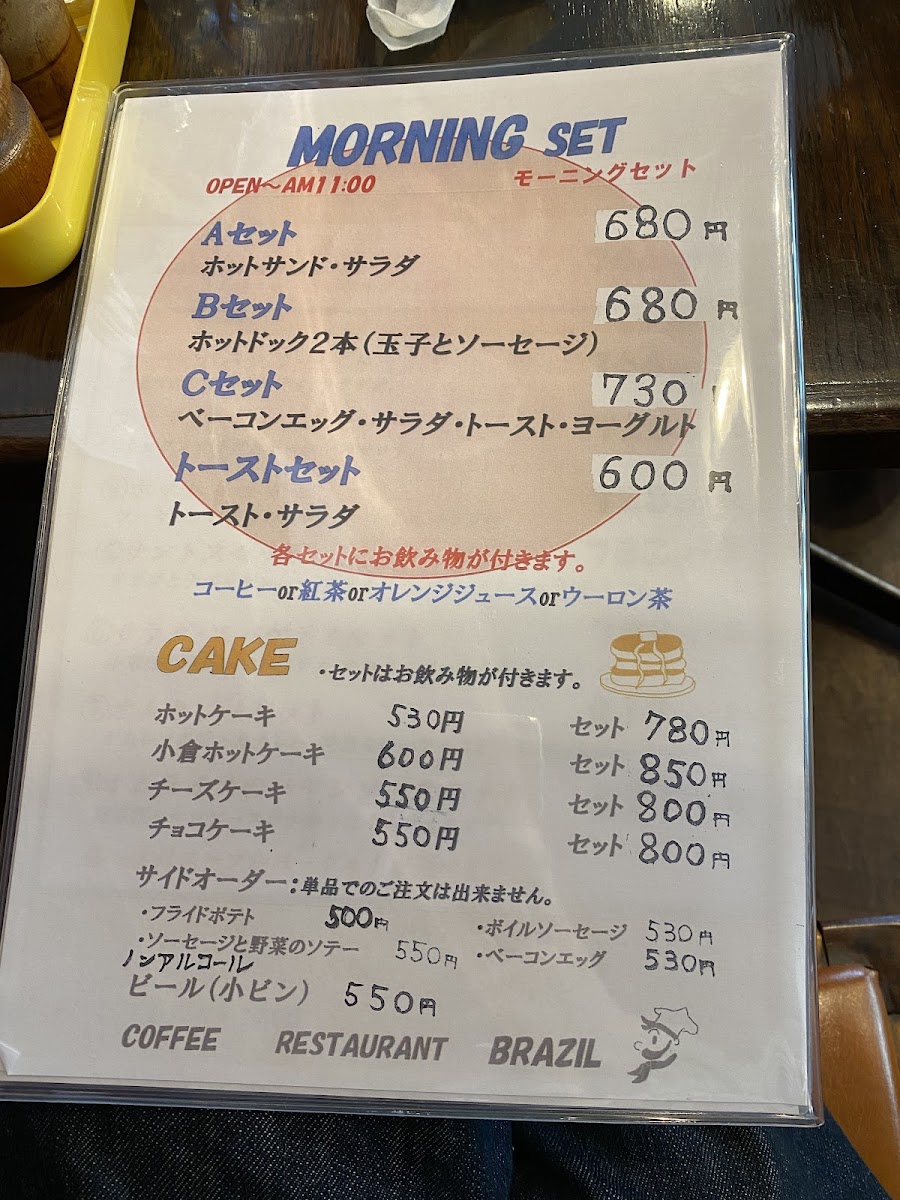 MORNING SET
OPEN～AM11:00 モーニングセット
Aセット 680円
ホットサンド・サラダ
Bセット 680円
ホットドック2本(玉子とソーセージ)
Cセット 730
ベーコンエッグ・サラダ・トースト・ヨーグルト
トーストセット 600円
トースト・サラダ
各セットにお飲み物が付きます。
コーヒーor紅茶orオレンジジュースorウーロン茶
CAKE ・セットはお飲み物が付きます。
ホットケーキ 530円 セット 780円
小倉ホットケーキ 600円 セット 850円
チーズケーキ 550円 セット 800円
チョコケーキ 550円 セット 800円
サイドオーダー：単品でのご注文は出来ません。
・フライドポテト 500円 ・ボイルソーセージ 530円
・ソーセージと野菜のソテー 550円 ・ベーコンエッグ 530円
ノンアルコール
ビール(小ビン) 550円
COFFEE RESTAURANT BRAZIL